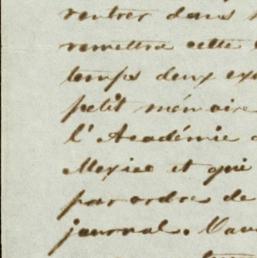 rentrer dans
remettre cette
temps deux ex
petit mémoire
l'Académie
Mexico et qui
par ordre de
journal. Vou